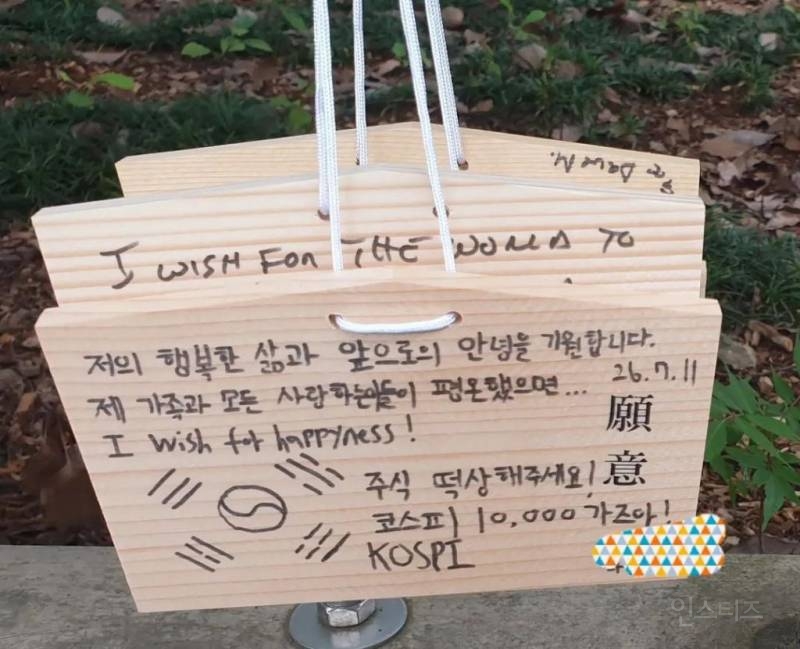 I WISH FOR THE WORLD TO
저의 행복한 삶과 앞으로의 안녕을 기원합니다.
26.7.11
제 가족과 모든 사랑하는이들이 평온했으면...
I wish for happyness!
願意
주식 떡상해주세요!
코스피 10,000 가즈아!
KOSPI
인스티즈